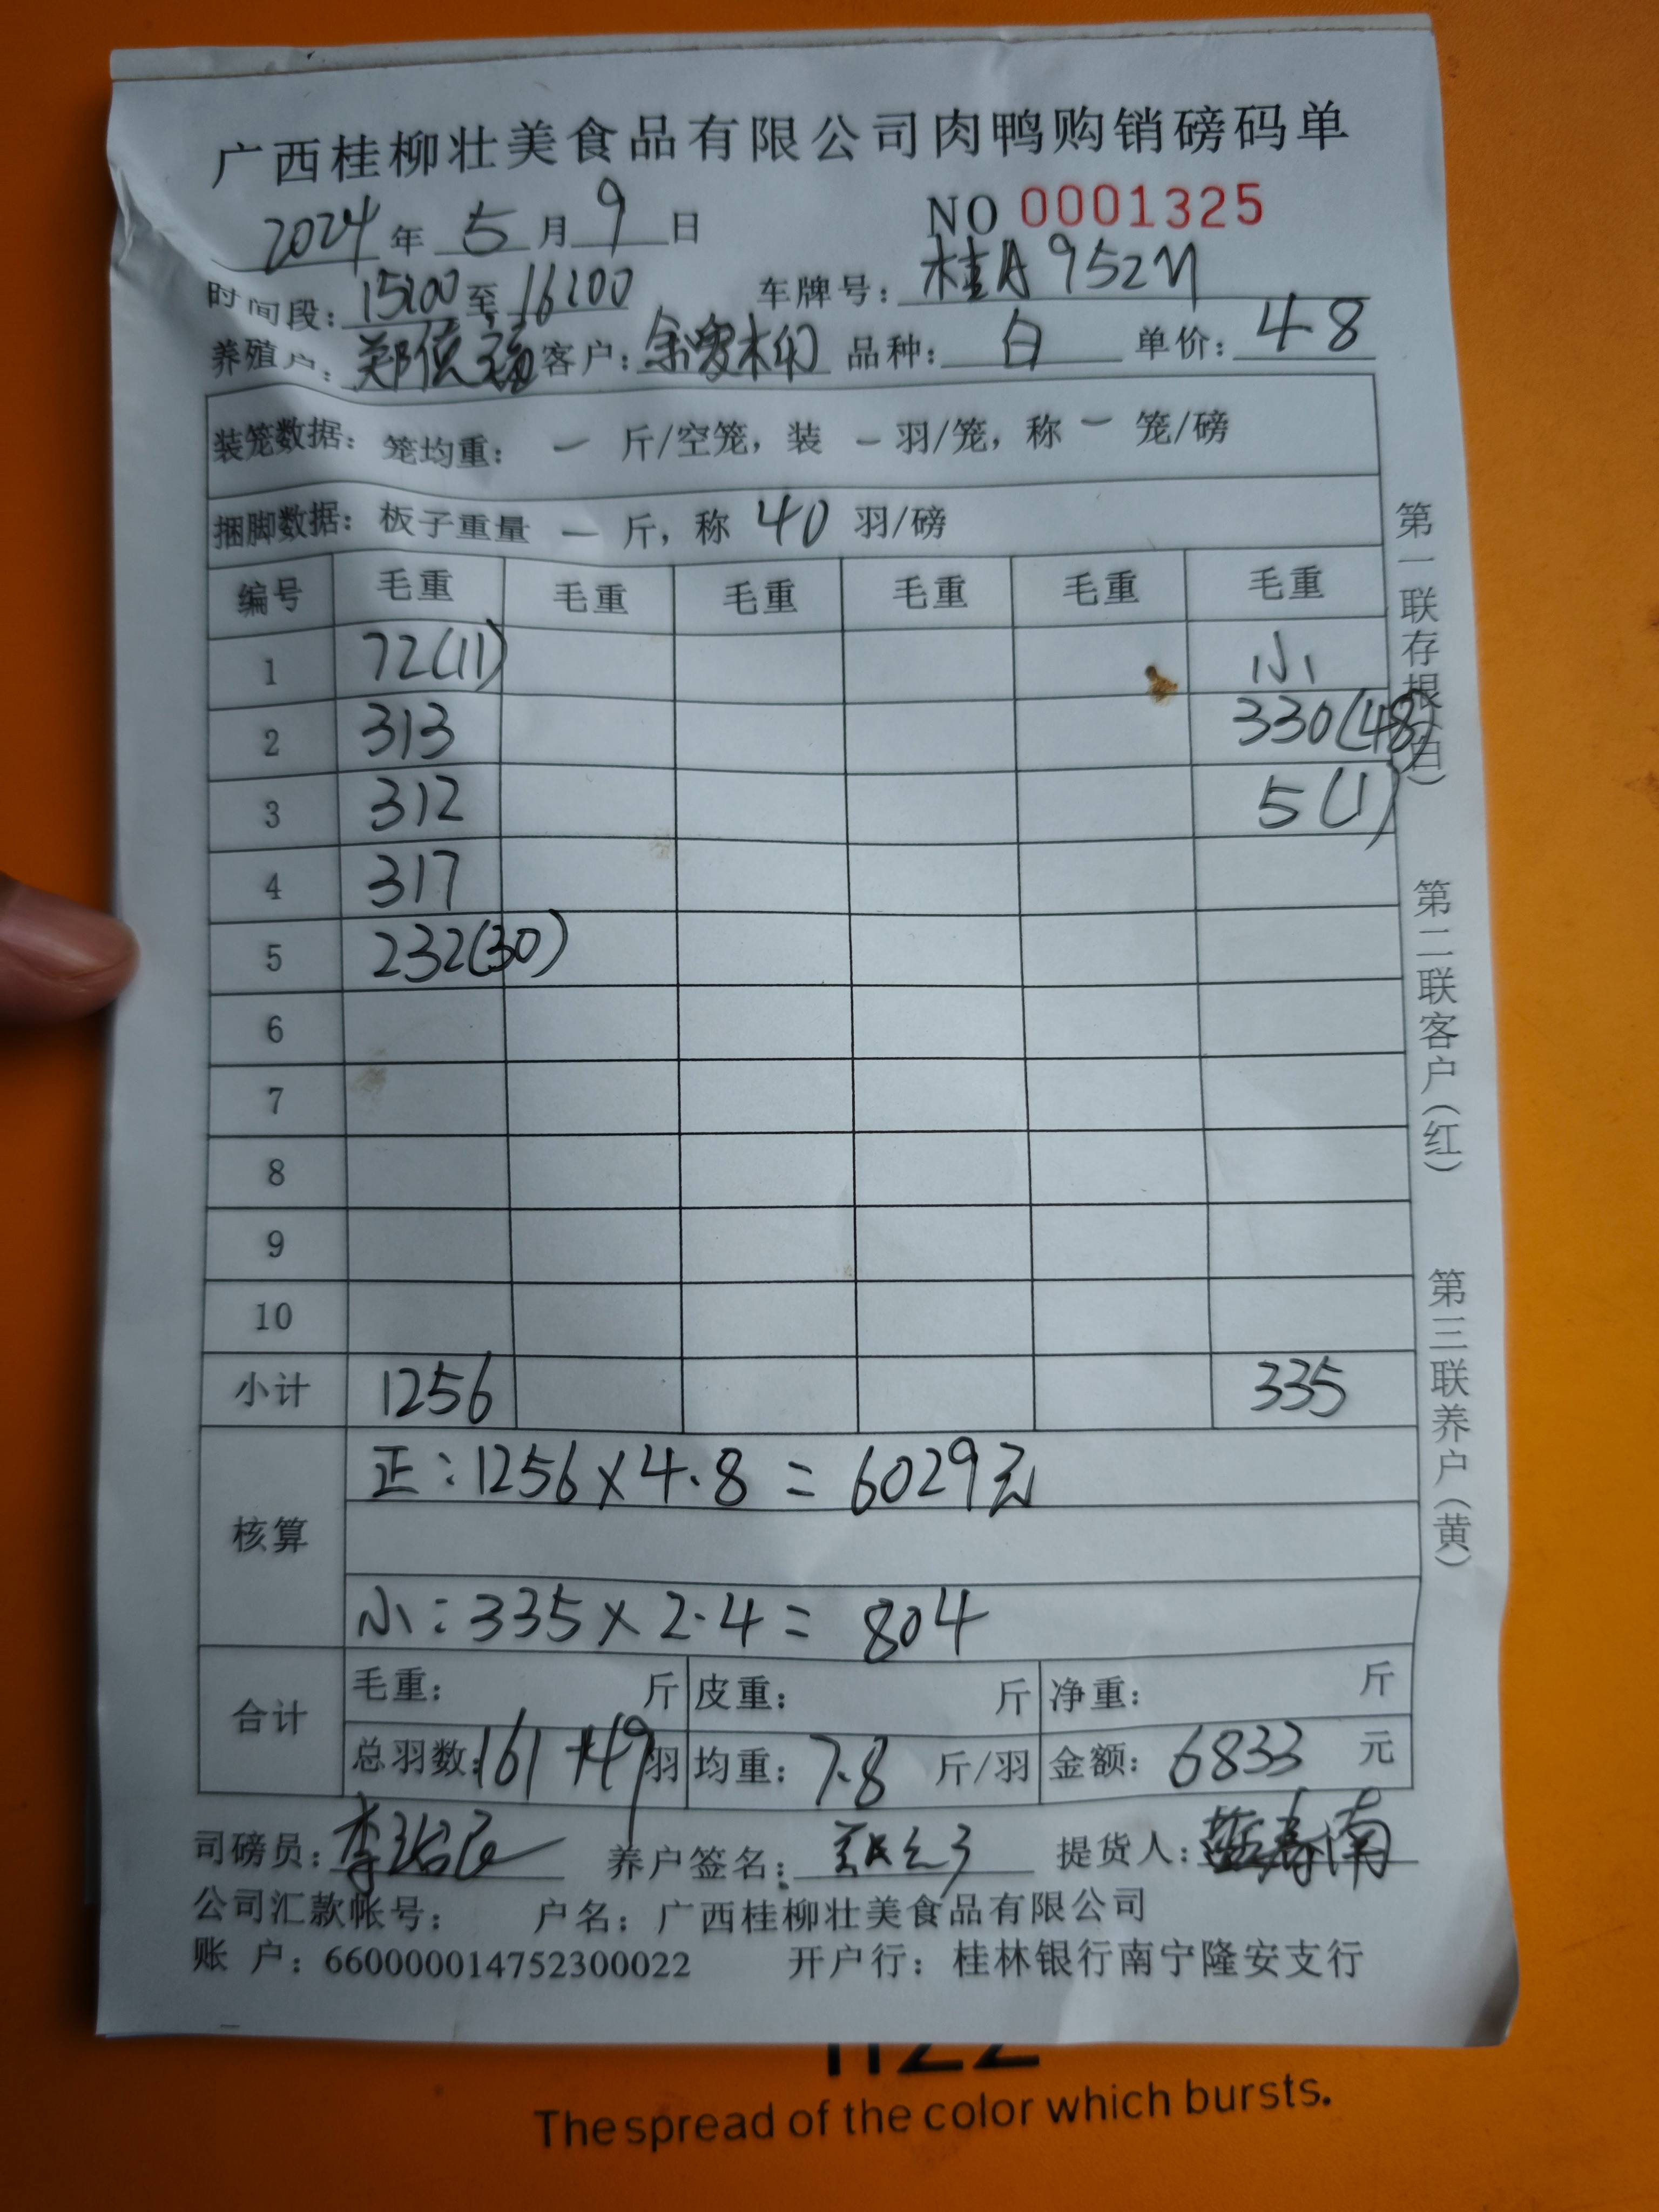 广西桂柳壮美食品有限公司肉鸭购销磅码单
2024年 5月 9日 NO 0001325
时间段：15:00至16:00 车牌号：桂A952N
养殖户： 客户： 品种：白 单价：4.8
装笼数据：笼均重：一斤/空笼，装一羽/笼，称一笼/磅
捆脚数据：板子重量一斤，称40羽/磅
编号 毛重 毛重 毛重 毛重 毛重 毛重
1 72(11) 小
2 313 330(48)
3 312 5(1)
4 317
5 232(30)
6
7
8
9
10
小计 1256 335
核算
正：1256×4.8=6029元
小：335×2.4=804
合计
毛重： 斤 皮重： 斤 净重： 斤
总羽数：161+49羽 均重：7.8斤/羽 金额：6833元
司磅员： 养户签名： 提货人：蓝春南
公司汇款帐号： 户名：广西桂柳壮美食品有限公司
账户：660000014752300022 开户行：桂林银行南宁隆安支行
第一联存根(白)
第二联客户(红)
第三联养户(黄)
The spread of the color which bursts.